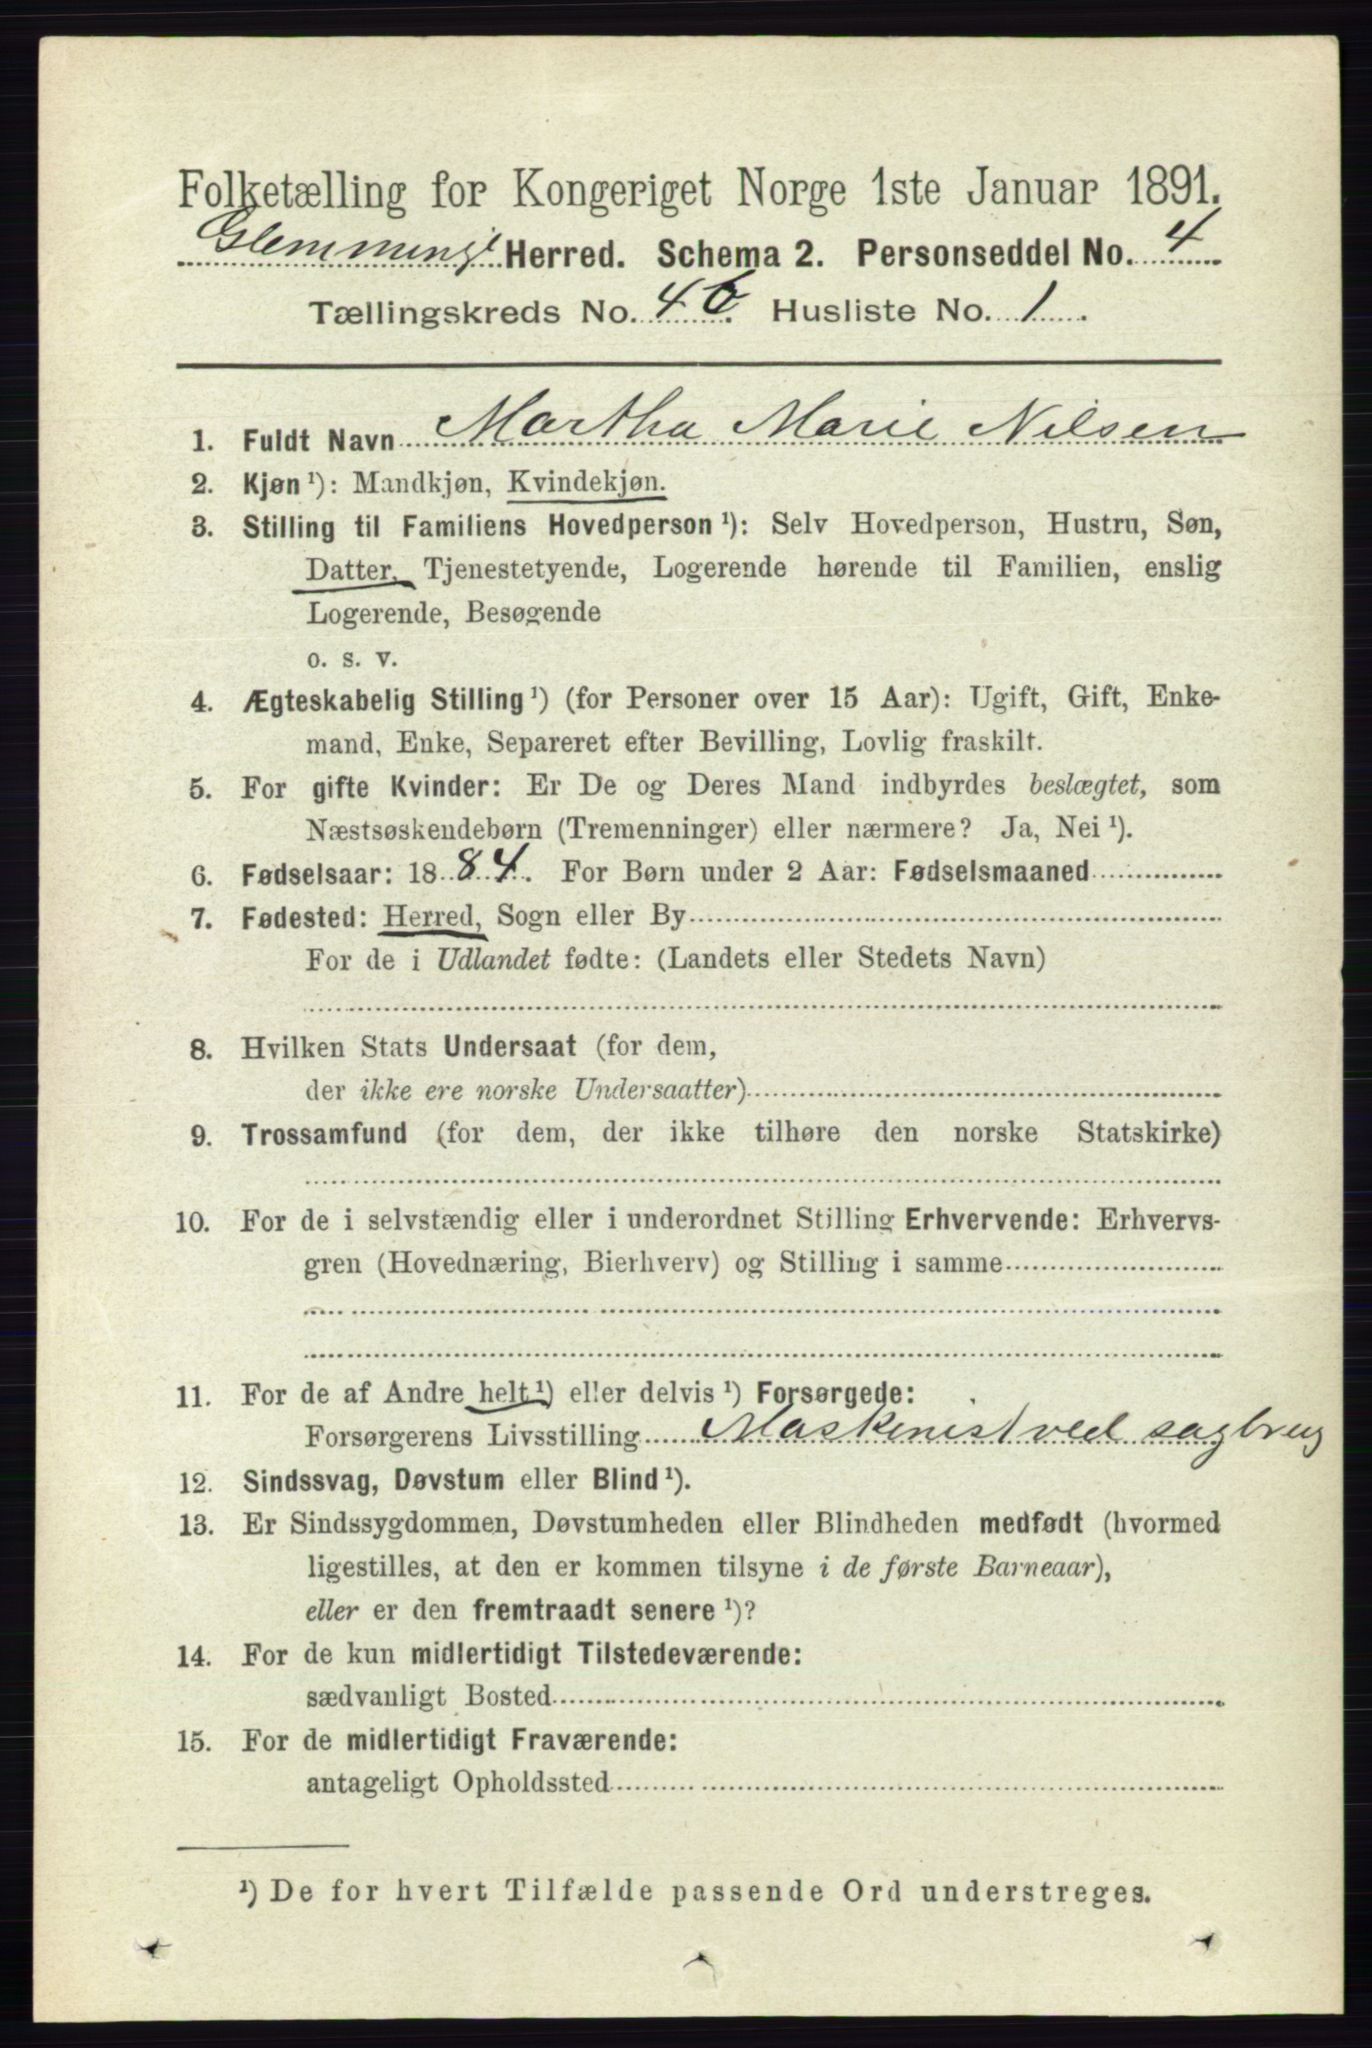 Folketælling for Kongeriget Norge 1ste Januar 1891.
Glemminge Herred. Schema 2. Personseddel No. 4
Tællingskreds No. 4 b Husliste No. 1
1. Fuldt Navn Martha Marie Nilsen
2. Kjøn ¹): Mandkjøn, Kvindekjøn.
3. Stilling til Familiens Hovedperson ¹): Selv Hovedperson, Hustru, Søn,
Datter, Tjenestetyende, Logerende hørende til Familien, enslig
Logerende, Besøgende
o. s. v.
4. Ægteskabelig Stilling ¹) (for Personer over 15 Aar): Ugift, Gift, Enke-
mand, Enke, Separeret efter Bevilling, Lovlig fraskilt.
5. For gifte Kvinder: Er De og Deres Mand indbyrdes beslægtet, som
Næstsøskendebørn (Tremenninger) eller nærmere? Ja, Nei ¹).
6. Fødselsaar: 1884. For Børn under 2 Aar: Fødselsmaaned
7. Fødested: Herred, Sogn eller By
For de i Udlandet fødte: (Landets eller Stedets Navn)
8. Hvilken Stats Undersaat (for dem,
der ikke ere norske Undersaatter)
9. Trossamfund (for dem, der ikke tilhøre den norske Statskirke)
10. For de i selvstændig eller i underordnet Stilling Erhvervende: Erhvervs-
gren (Hovednæring, Bierhverv) og Stilling i samme
11. For de af Andre helt ¹) eller delvis ¹) Forsørgede:
Forsørgerens Livsstilling Maskinist ved sagbrug
12. Sindssvag, Døvstum eller Blind ¹).
13. Er Sindssygdommen, Døvstumheden eller Blindheden medfødt (hvormed
ligestilles, at den er kommen tilsyne i de første Barneaar),
eller er den fremtraadt senere ¹)?
14. For de kun midlertidigt Tilstedeværende:
sædvanligt Bosted
15. For de midlertidigt Fraværende:
antageligt Opholdssted
¹) De for hvert Tilfælde passende Ord understreges.